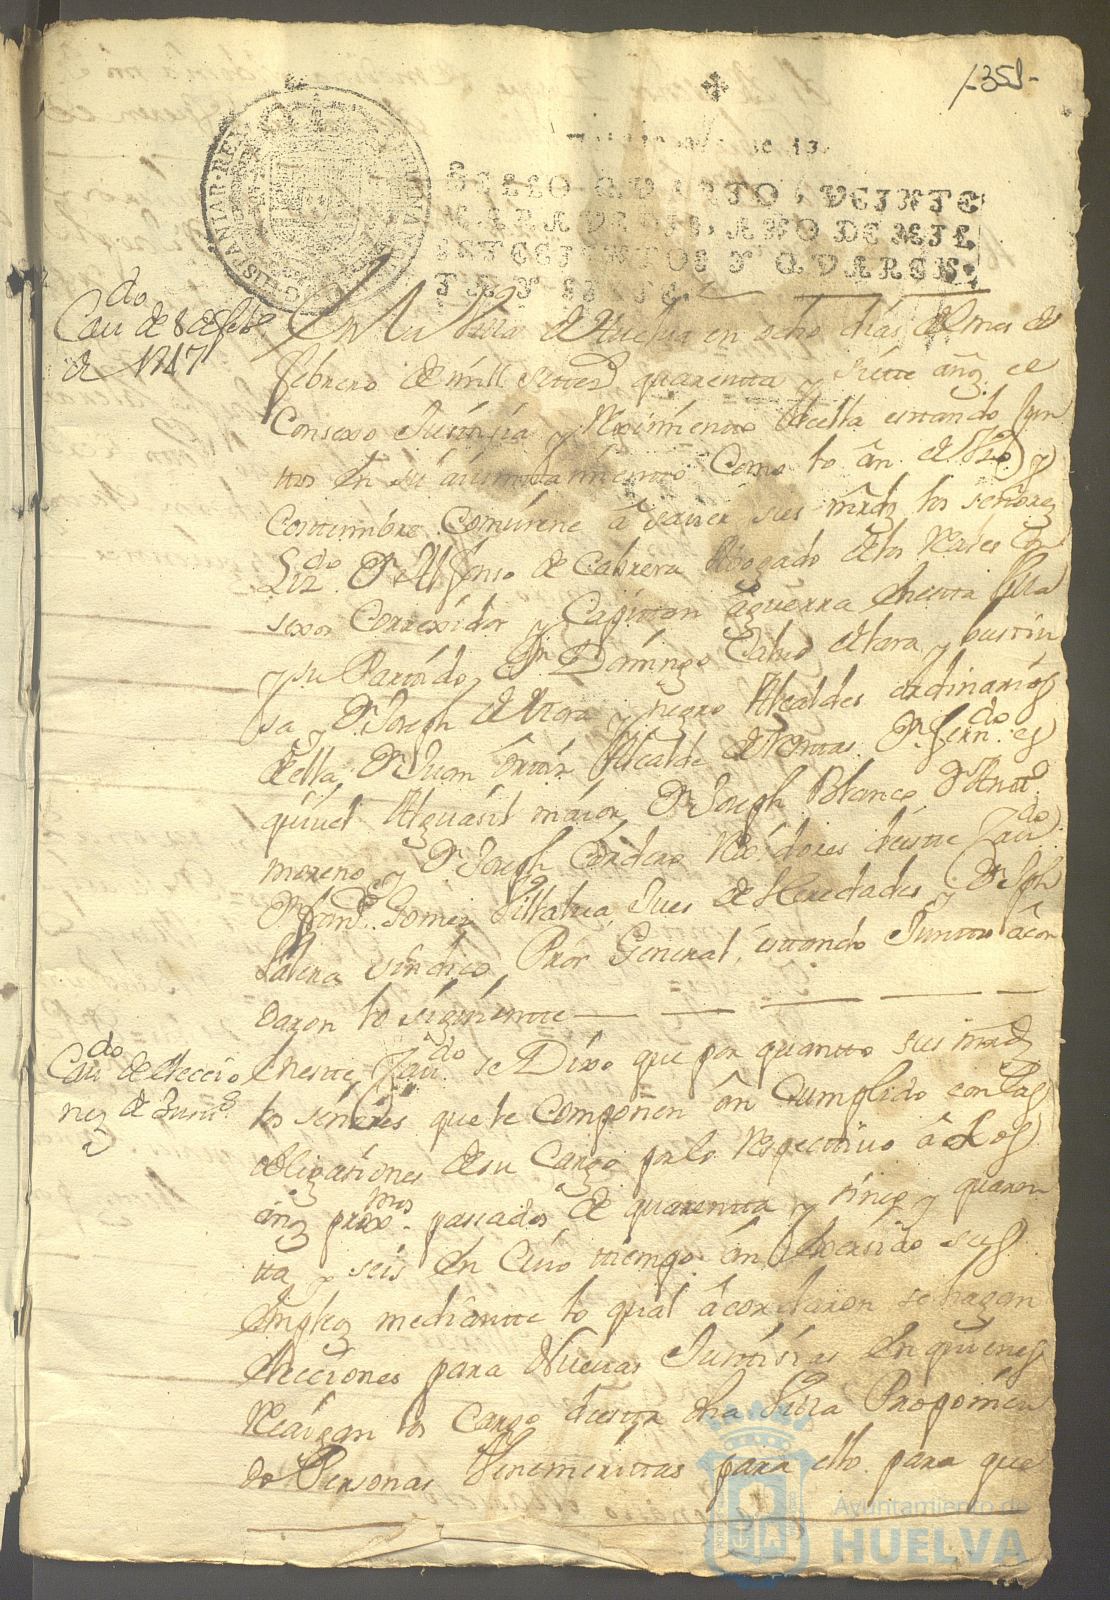 358
SELLO QVARTO, VEINTE
MARAVEDIS, AÑO DE MIL
SETECIENTOS Y QVAREN-
TA Y SIETE.
HISPANIAR·REX
Cavdo de 8 de febo
de 1747
En la Villa de Huelva en ocho dias del mes de
febrero de mill settes quarentta y siette años el
Consexo Justisia y Reximiento della estando Jun
ttos en su aiunttamientto como lo an de Uso y
Costtumbre Combiene a saver sus mrds los señores
Lizdo Dn Alfonso de Cabrera Abogado de los Reales Con
sexos Correxidor y Capittan a guerra desta Villa
y su Partido, Dn Domingo Calvo de Lara y bustin
sa, y Dn Joseph de Mora y negro Alcaldes ordinarios
della, Dn Juan Alcalde de Renttas Dn ferndo es
quivel Alguasil maior, Dn Joseph Blanco Dn Antto
moreno y Dn Joseph Cordero Rexidores deste Cavdo
Dn Gomez Villalva Jues de Heredades y Dn Jph
Latera sindico Pror General, esttando Junttos acor
daron lo siguientte
Cavdo de Eleccio
nes de Justs
En estte Cavdo se Dixo que por quantto sus mrds
los señores que le componen an Cumplido con las
obligasiones de su Cargo por lo Respectivo a los
años proxmos pasados de quarentta y sinco y quaren
tta y seis en Cuio ttiempo an exersido sus
Empleos mediantte lo qual acordaron se hagan
elecciones para Nuevas Justtisias en quienes
Recaigan los Cargos desta dha Villa Proponien
do Personas Venemerittas para ello para que
Ayuntamiento de
HUELVA